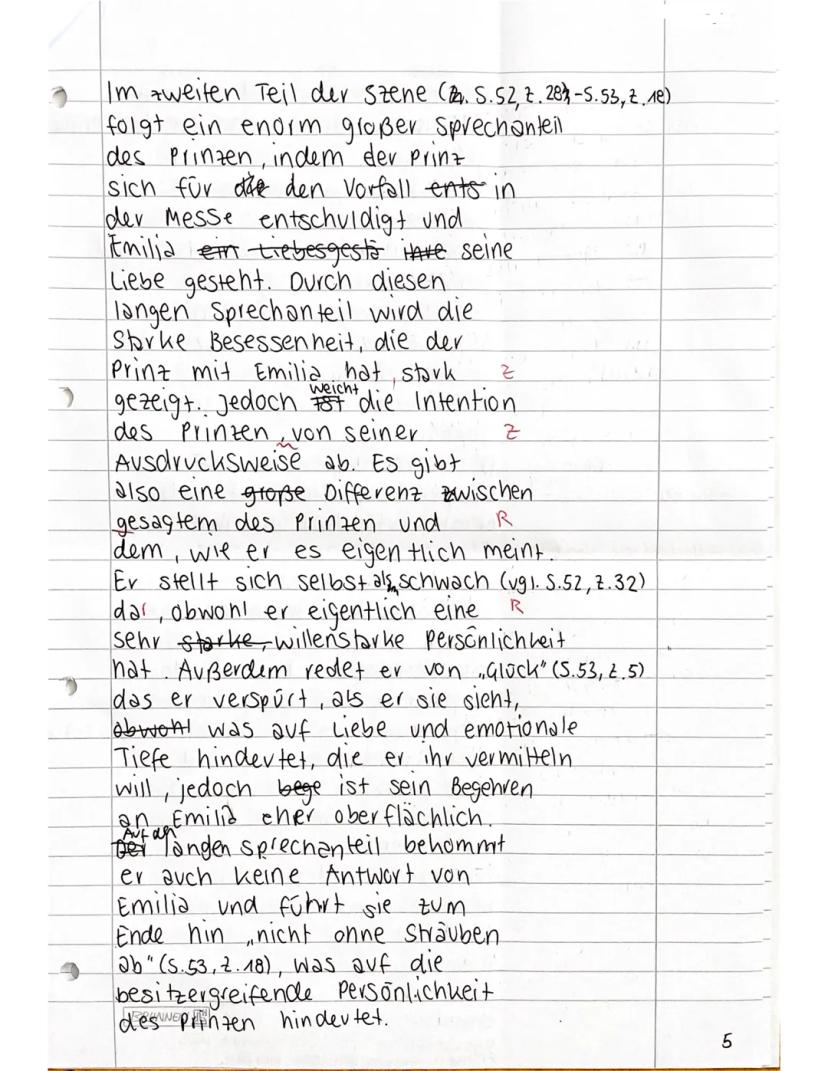 Im zweiten Teil der Szene (Z. S.52, Z.28-S.53, Z.18)
folgt ein enorm großer Sprechanteil
des Prinzen, indem der Prinz
sich für die den Vorfall ents in
der Messe entschuldigt und
Emilia ein Liebesgestä ihre seine
Liebe gesteht. Durch diesen
langen Sprechanteil wird die
starke Besessenheit, die der
Prinz mit Emilia hat, stark Z
gezeigt. Jedoch ist weicht die Intention
des Prinzen, von seiner Z
Ausdrucksweise ab. Es gibt
also eine große Differenz zwischen
gesagtem des Prinzen und R
dem, wie er es eigentlich meint.
Er stellt sich selbst als schwach (vgl. S.52, Z.32)
dar, obwohl er eigentlich eine R
sehr starke, willenstarke Persönlichkeit
hat. Außerdem redet er von „Glück" (S.53, Z.5)
das er verspürt, als er sie sieht,
obwohl was auf Liebe und emotionale
Tiefe hindeutet, die er ihr vermitteln
will, jedoch bege ist sein Begehren
an Emilia eher oberflächlich.
Der Auf den langen Sprechanteil bekommt
er auch keine Antwort von
Emilia und führt sie zum
Ende hin „nicht ohne Sträuben
ab" (S.53, Z.18), was auf die
besitzergreifende Persönlichkeit
des Prinzen hindeutet.
BRUNNEN
5